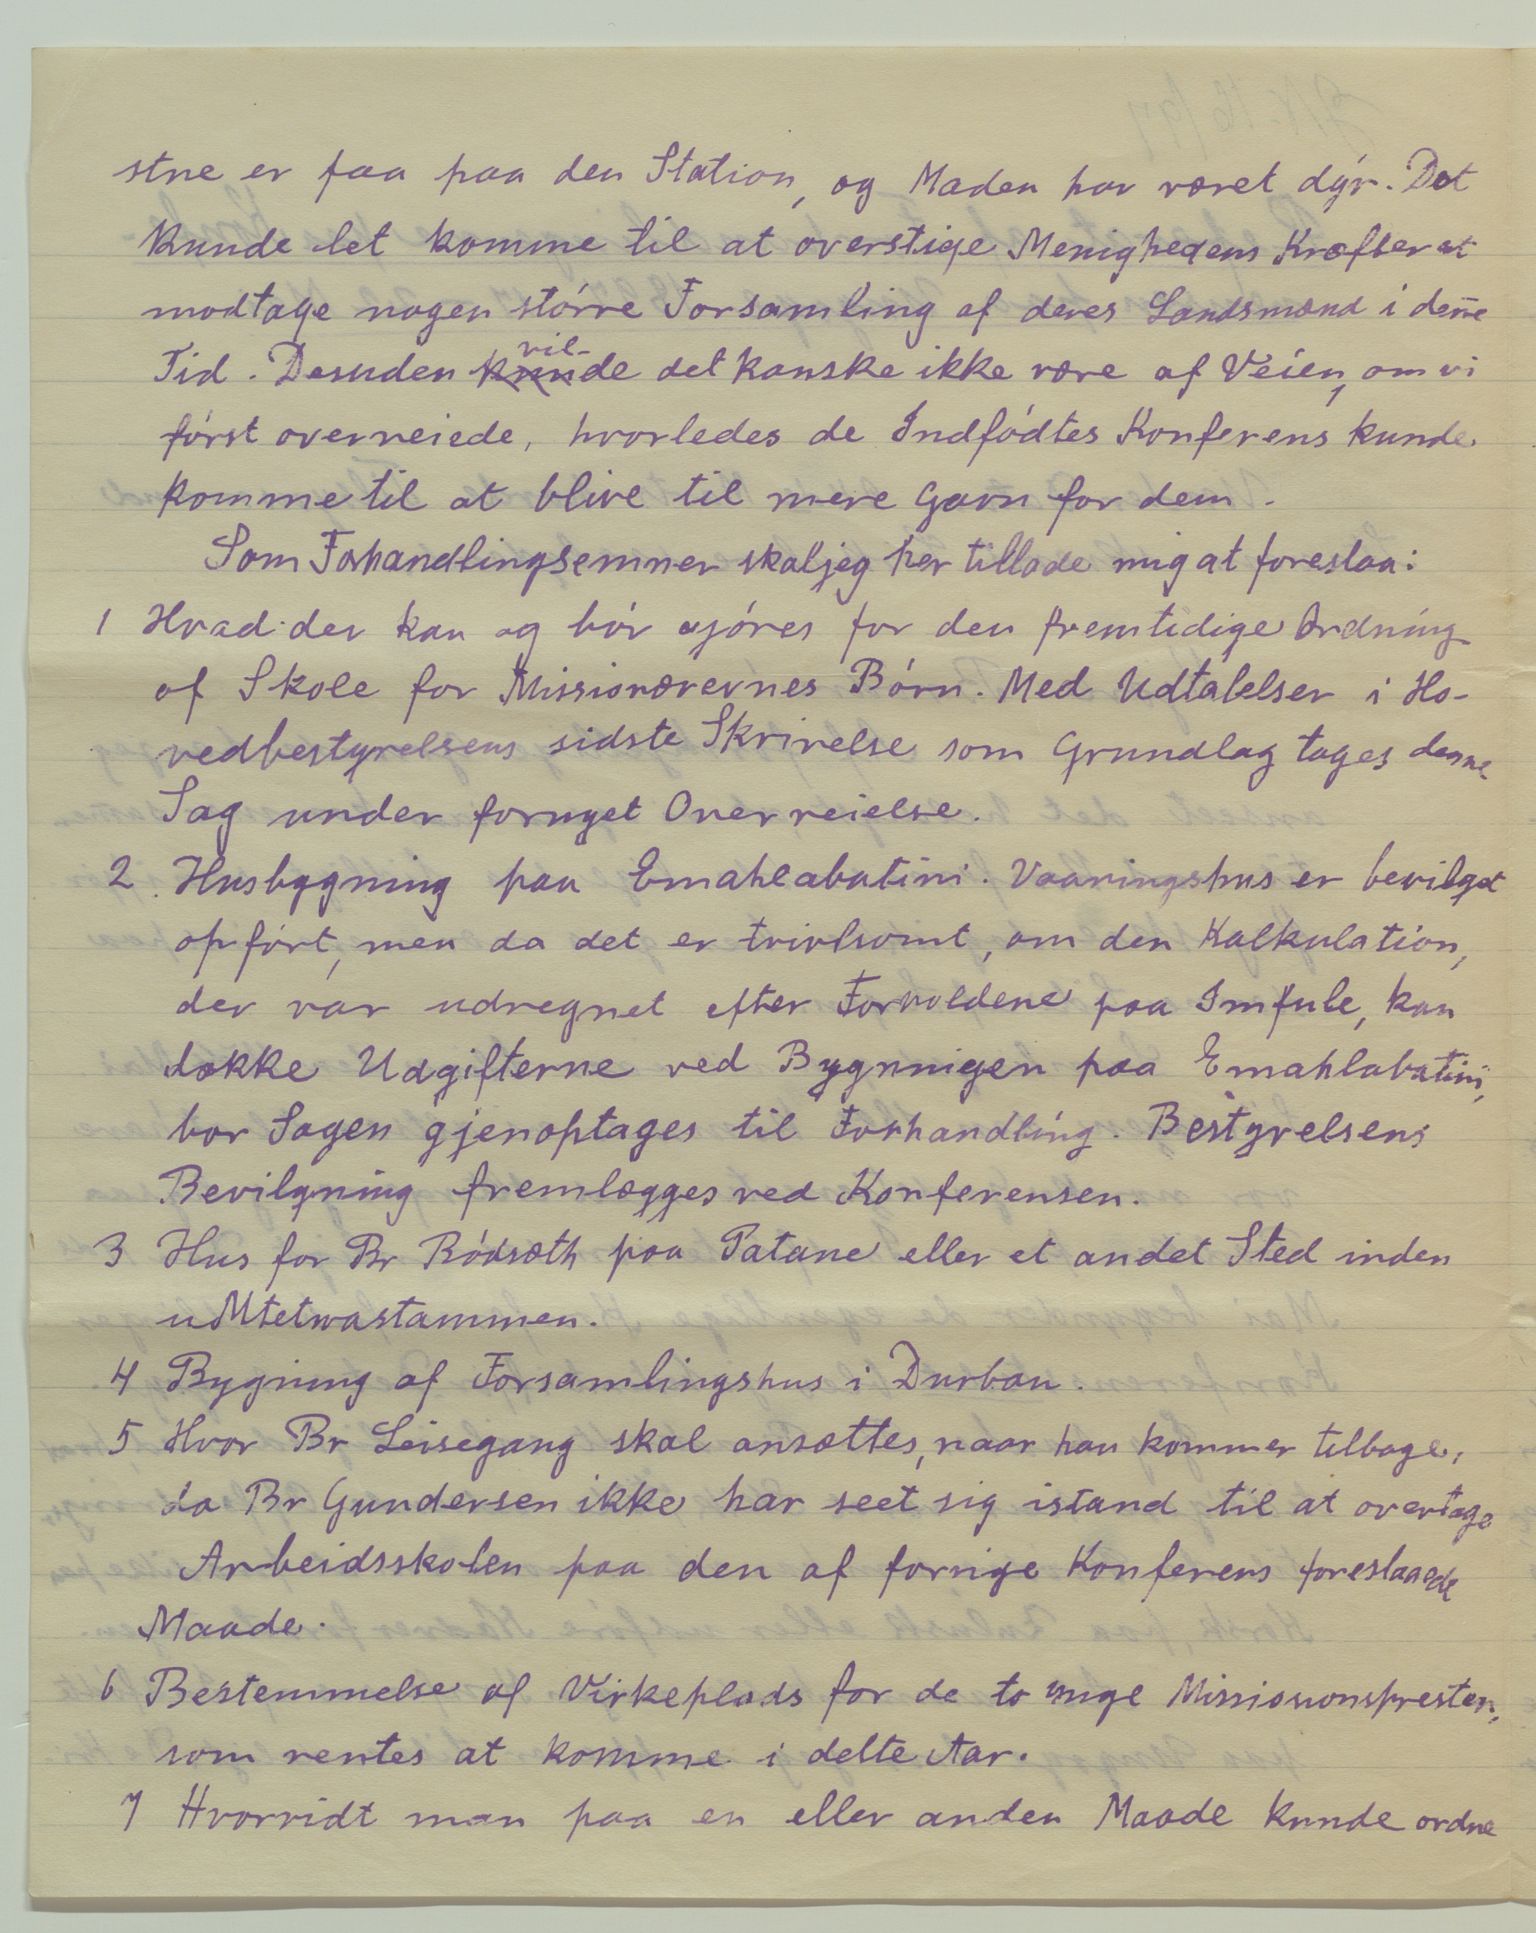 stne er faa paa den Station, og Maden har været dýr. Det
kunde let komme til at overstige Menighedens Kræfter at
modtage nogen större Forsamling af deres Landsmænd i denne
Tid. Desuden vilde det kanske ikke være af Veien, om vi
först overveiede, hvorledes de Indfödtes Konferens kunde
komme til at blive til mere Gavn for dem.
Som Forhandlingsemner skal jeg her tillade mig at foreslaa:
1 Hvad der kan og bör gjöres for den fremtidige Ordning
af Skole for Missionærernes Börn. Med Udtalelser i Ho-
vedbestyrelsens sidste Skrivelse som Grundlag tages denne
Sag under fornyet Overveielse.
2. Husbygning paa Emahlabatini. Vaaningshus er bevilget
opfört, men da det er tvivlsomt, om den Kalkulation,
der var udregnet efter Forholdene paa Imfule, kan
dække Udgifterne ved Bygnnigen paa Emahlabatini,
bør Sagen gjenoptages til Forhandling. Bestyrelsens
Bevilgning fremlægges ved Konferensen.
3 Hus for Br Rödsæth paa Patane eller et andet Sted inden
uMtetwastammen.
4 Bygning af Forsamlingshus i Durban.
5 Hvor Br Leisegang skal ansættes, naar han kommer tilbage,
da Br Gundersen ikke har seet sig istand til at overtage
Arbeidsskolen paa den af forrige Konferens foreslaaede
Maade.
6 Bestemmelse af Virkeplads for de to unge Missionsprester,
som ventes at komme i dette Aar.
7 Hvorvidt man paa en eller anden Maade kunde ordne